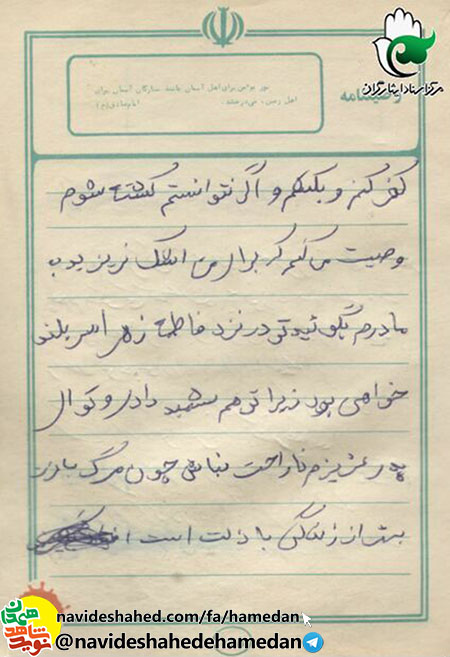 مرکز اسناد ایثارگران
وصیتنامه
نور مؤمن برای اهل آسمان مانند ستارگان آسمان برای
اهل زمین، می‌درخشد. امام صادق (ع)
کفر کنم و بکشم و اگر نتوانستم کشته شوم
وصیت می کنم که برای من اشک نریزید و ب
مادرم بگوئید تو در نزد فاطمه زهرا سربلند
خواهی بود زیرا تو هم شهید دادی و تو ای
پدر عزیزم ناراحت نباش چون مرگ با عزت
بهتر از زندگی با ذلت است
نوید شاهد همدان
navideshahed.com/fa/hamedan
@navideshahedehamedan